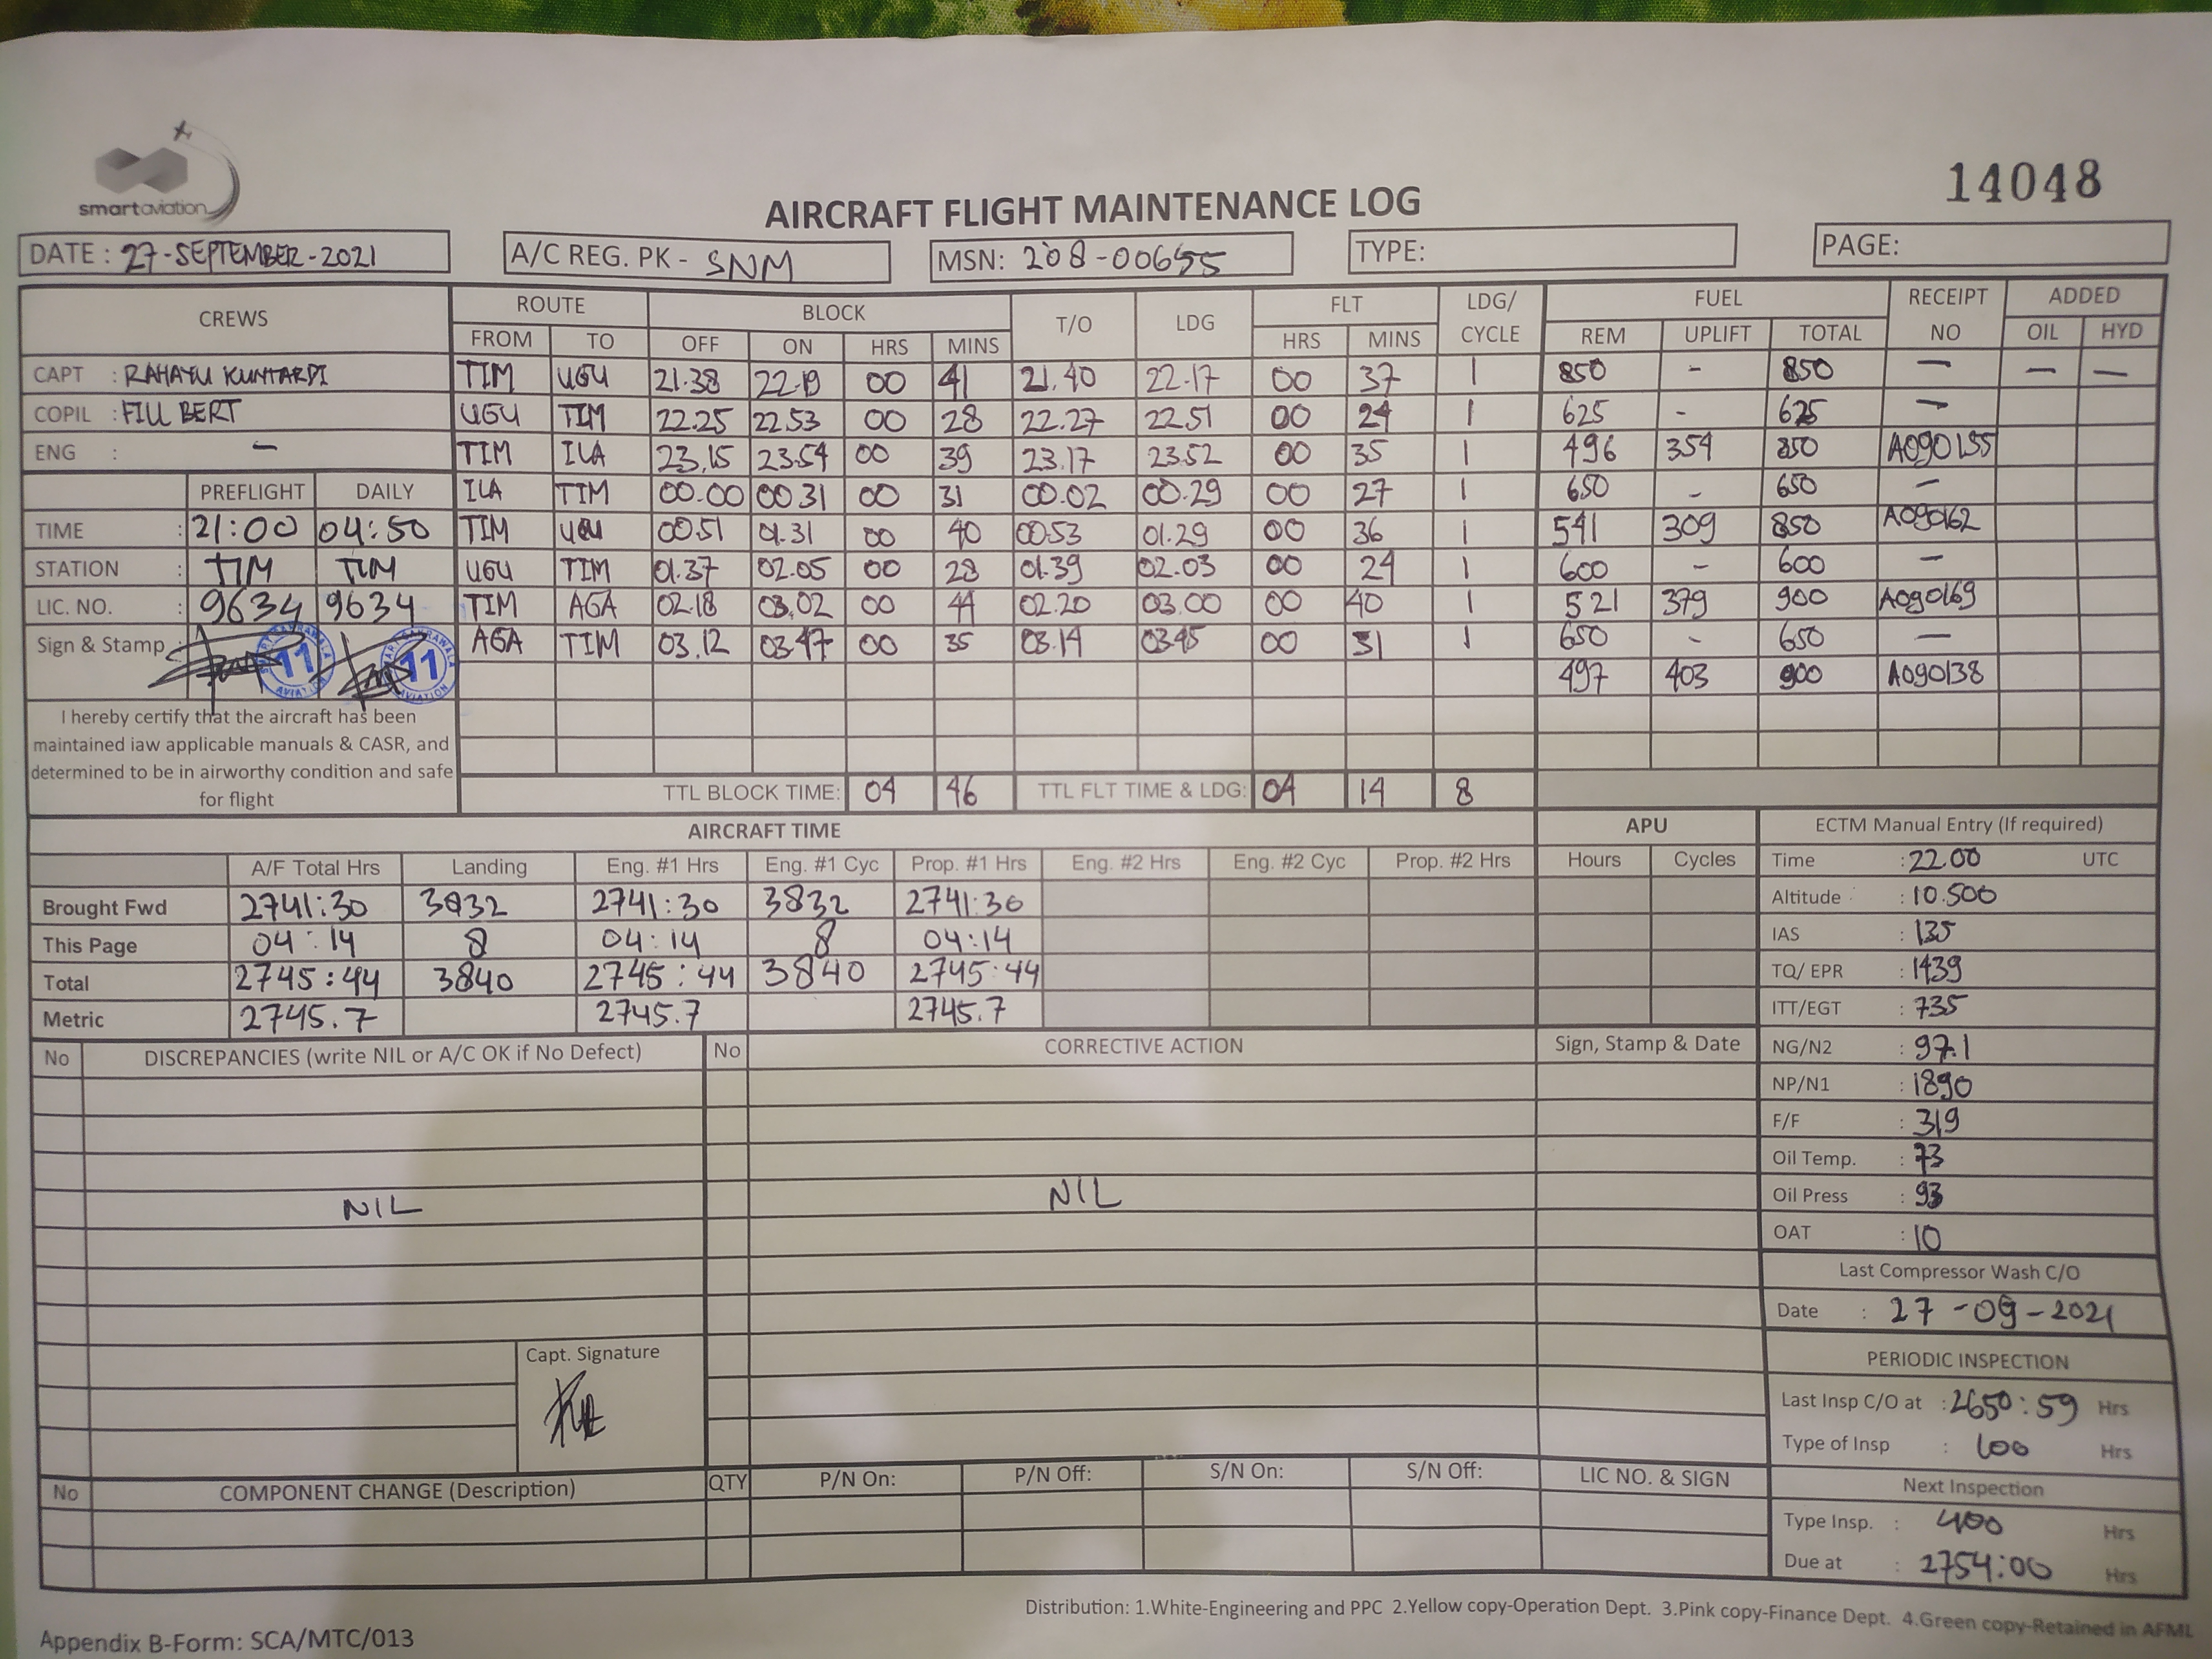 smartaviation
14048
AIRCRAFT FLIGHT MAINTENANCE LOG
DATE : 27-SEPTEMBER-2021 A/C REG. PK - SNM MSN: 208-00655 TYPE: PAGE:
CREWS ROUTE BLOCK T/O LDG FLT LDG/ CYCLE FUEL RECEIPT NO ADDED
FROM TO OFF ON HRS MINS HRS MINS REM UPLIFT TOTAL OIL HYD
CAPT : RAHAYU KUNTARDI TIM UGU 21.38 22.19 00 41 21.40 22.17 00 37 1 850 - 850 — — —
COPIL : FILL BERT UGU TIM 22.25 22.53 00 28 22.27 22.51 00 24 1 625 - 625 —
ENG : — TIM ILA 23.15 23.54 00 39 23.17 23.52 00 35 1 496 354 850 A090155
PREFLIGHT DAILY ILA TIM 00.00 00.31 00 31 00.02 00.29 00 27 1 650 - 650 —
TIME : 21:00 04:50 TIM UGU 00.51 01.31 00 40 00.53 01.29 00 36 1 541 309 850 A090162
STATION : TIM TIM UGU TIM 01.37 02.05 00 28 01.39 02.03 00 24 1 600 - 600 —
LIC. NO. : 9634 9634 TIM AGA 02.18 03.02 00 44 02.20 03.00 00 40 1 521 379 900 A090169
Sign & Stamp : 11 11 AGA TIM 03.12 03.47 00 35 03.14 03.45 00 31 1 650 - 650 —
497 403 900 A090138
I hereby certify that the aircraft has been
maintained iaw applicable manuals & CASR, and
determined to be in airworthy condition and safe
for flight
TTL BLOCK TIME: 04 46 TTL FLT TIME & LDG: 04 14 8
AIRCRAFT TIME APU ECTM Manual Entry (If required)
A/F Total Hrs Landing Eng. #1 Hrs Eng. #1 Cyc Prop. #1 Hrs Eng. #2 Hrs Eng. #2 Cyc Prop. #2 Hrs Hours Cycles Time : 22.00 UTC
Brought Fwd 2741:30 3832 2741:30 3832 2741:30 Altitude : 10.500
This Page 04:14 8 04:14 8 04:14 IAS : 135
Total 2745:44 3840 2745:44 3840 2745:44 TQ/ EPR : 1439
Metric 2745.7 2745.7 2745.7 ITT/EGT : 735
No DISCREPANCIES (write NIL or A/C OK if No Defect) No CORRECTIVE ACTION Sign, Stamp & Date NG/N2 : 97.1
NP/N1 : 1890
F/F : 319
Oil Temp. : 73
NIL NIL Oil Press : 93
OAT : 10
Last Compressor Wash C/O
Date : 27-09-2021
Capt. Signature
PERIODIC INSPECTION
Last Insp C/O at : 2650:59 Hrs
Type of Insp : 100 Hrs
No COMPONENT CHANGE (Description) QTY P/N On: P/N Off: S/N On: S/N Off: LIC NO. & SIGN Next Inspection
Type Insp. : 400 Hrs
Due at : 2754:00 Hrs
Distribution: 1.White-Engineering and PPC 2.Yellow copy-Operation Dept. 3.Pink copy-Finance Dept. 4.Green copy-Retained in AFML
Appendix B-Form: SCA/MTC/013